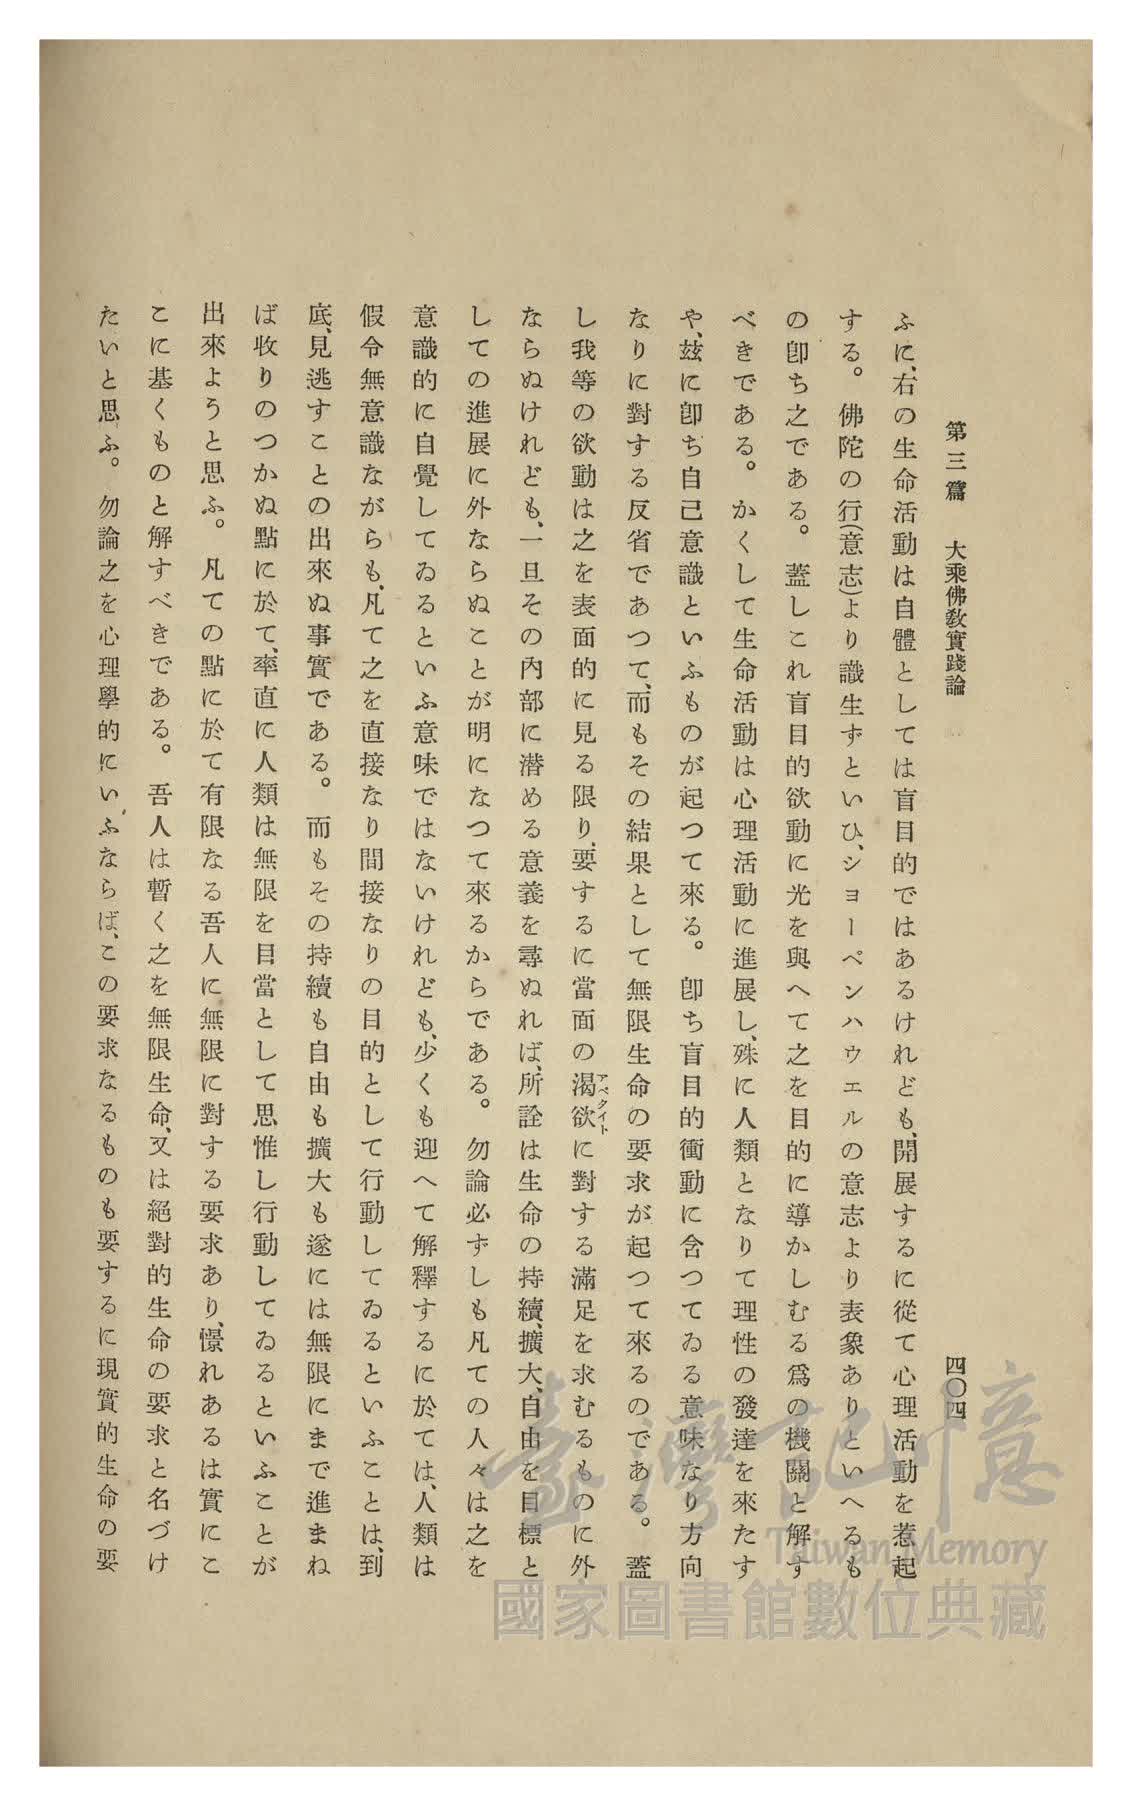 第三篇　大乘佛敎實踐論
四〇四
ふに、右の生命活動は自體としては盲目的ではあるけれども、開展するに從て心理活動を惹起
する。佛陀の行(意志)より識生ずといひ、ショーペンハウエルの意志より表象ありといへるも
の卽ち之である。蓋しこれ盲目的欲動に光を與へて之を目的に導かしむる爲の機關と解す
べきである。かくして生命活動は心理活動に進展し、殊に人類となりて理性の發達を來たす
や、玆に卽ち自己意識といふものが起つて來る。卽ち盲目的衝動に含つてゐる意味なり方向
なりに對する反省であつて、而もその結果として無限生命の要求が起つて來るのである。蓋
し我等の欲動は之を表面的に見る限り、要するに當面の渴欲アペタイトに對する滿足を求むるものに外
ならぬけれども、一旦その內部に潜める意義を尋ぬれば、所詮は生命の持續、擴大、自由を目標と
しての進展に外ならぬことが明になつて來るからである。勿論必ずしも凡ての人々は之を
意識的に自覺してゐるといふ意味ではないけれども、少くも迎へて解釋するに於ては、人類は
假令無意識ながらも、凡て之を直接なり間接なりの目的として行動してゐるといふことは、到
底、見逃すことの出來ぬ事實である。而もその持續も自由も擴大も遂には無限にまで進まね
ば收りのつかぬ點に於て、率直に人類は無限を目當として思惟し行動してゐるといふことが
出來ようと思ふ。凡ての點に於て有限なる吾人に無限に對する要求あり、憬れあるは實にこ
こに基くものと解すべきである。吾人は暫く之を無限生命、又は絕對的生命の要求と名づけ
たいと思ふ。勿論之を心理學的にいふならば、この要求なるものも要するに現實的生命の要
臺灣記憶
Taiwan Memory
國家圖書館數位典藏